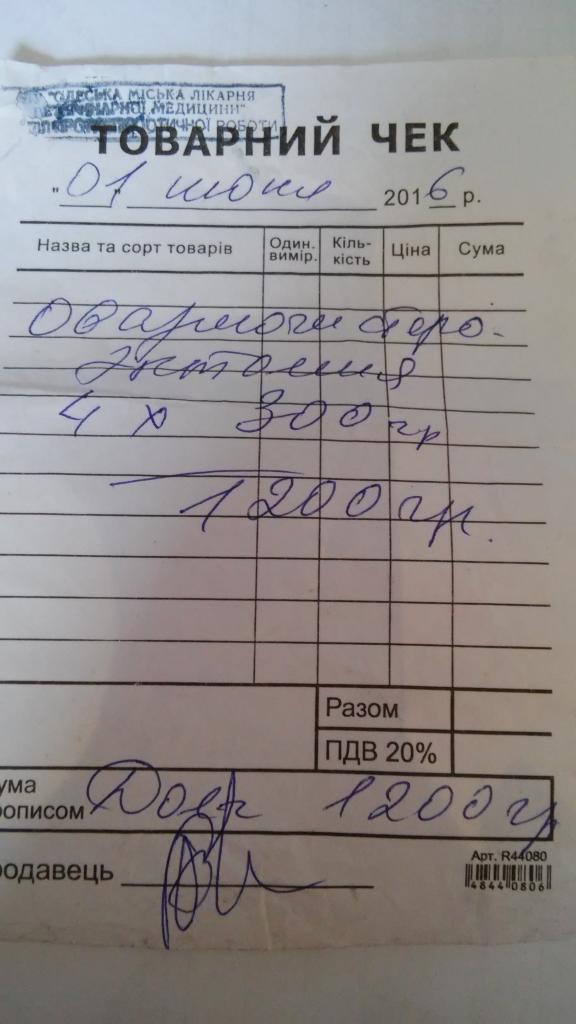 ОДЕСЬКА МІСЬКА ЛІКАРНЯ
ВЕТЕРИНАРНОЇ МЕДИЦИНИ"
РОБОТИ
ТОВАРНИЙ ЧЕК
"01" июня 2016 р.
Назва та сорт товарів Один. вимір. Кіль-кість Ціна Сума
Овариогистеро-
эктомия
4 х 300 гр
1200 гр.
Разом
ПДВ 20%
ума
рописом 1200 гр
родавець
Арт. R44080
4844 0806